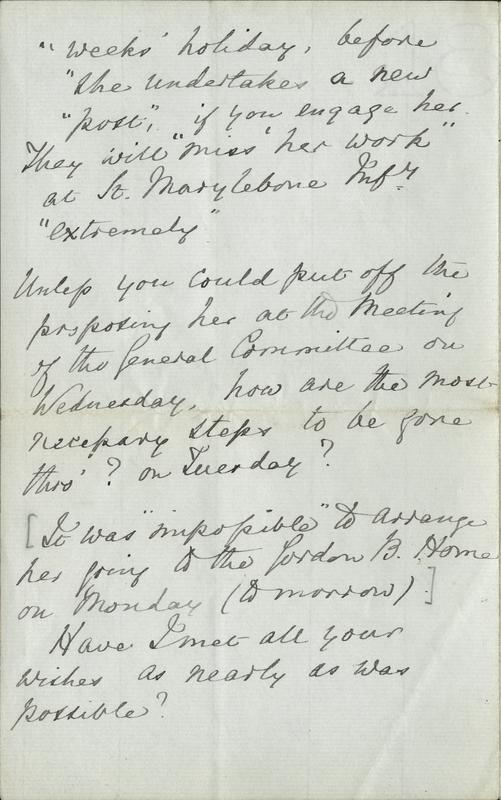 "weeks' holiday, before
"she undertakes a new
"post", if you engage her.
They will "miss her work"
at St. Marylebone Infy
"extremely"
Unless you could put off the
proposing her at the Meeting
of the General Committee on
Wednesday, how are the most
necessary steps to be gone
thro'? on Tuesday?
[It was "impossible" to arrange
her going to the Gordon B. Home
on Monday (to morrow).]
Have I met all your
wishes as nearly as was
possible?